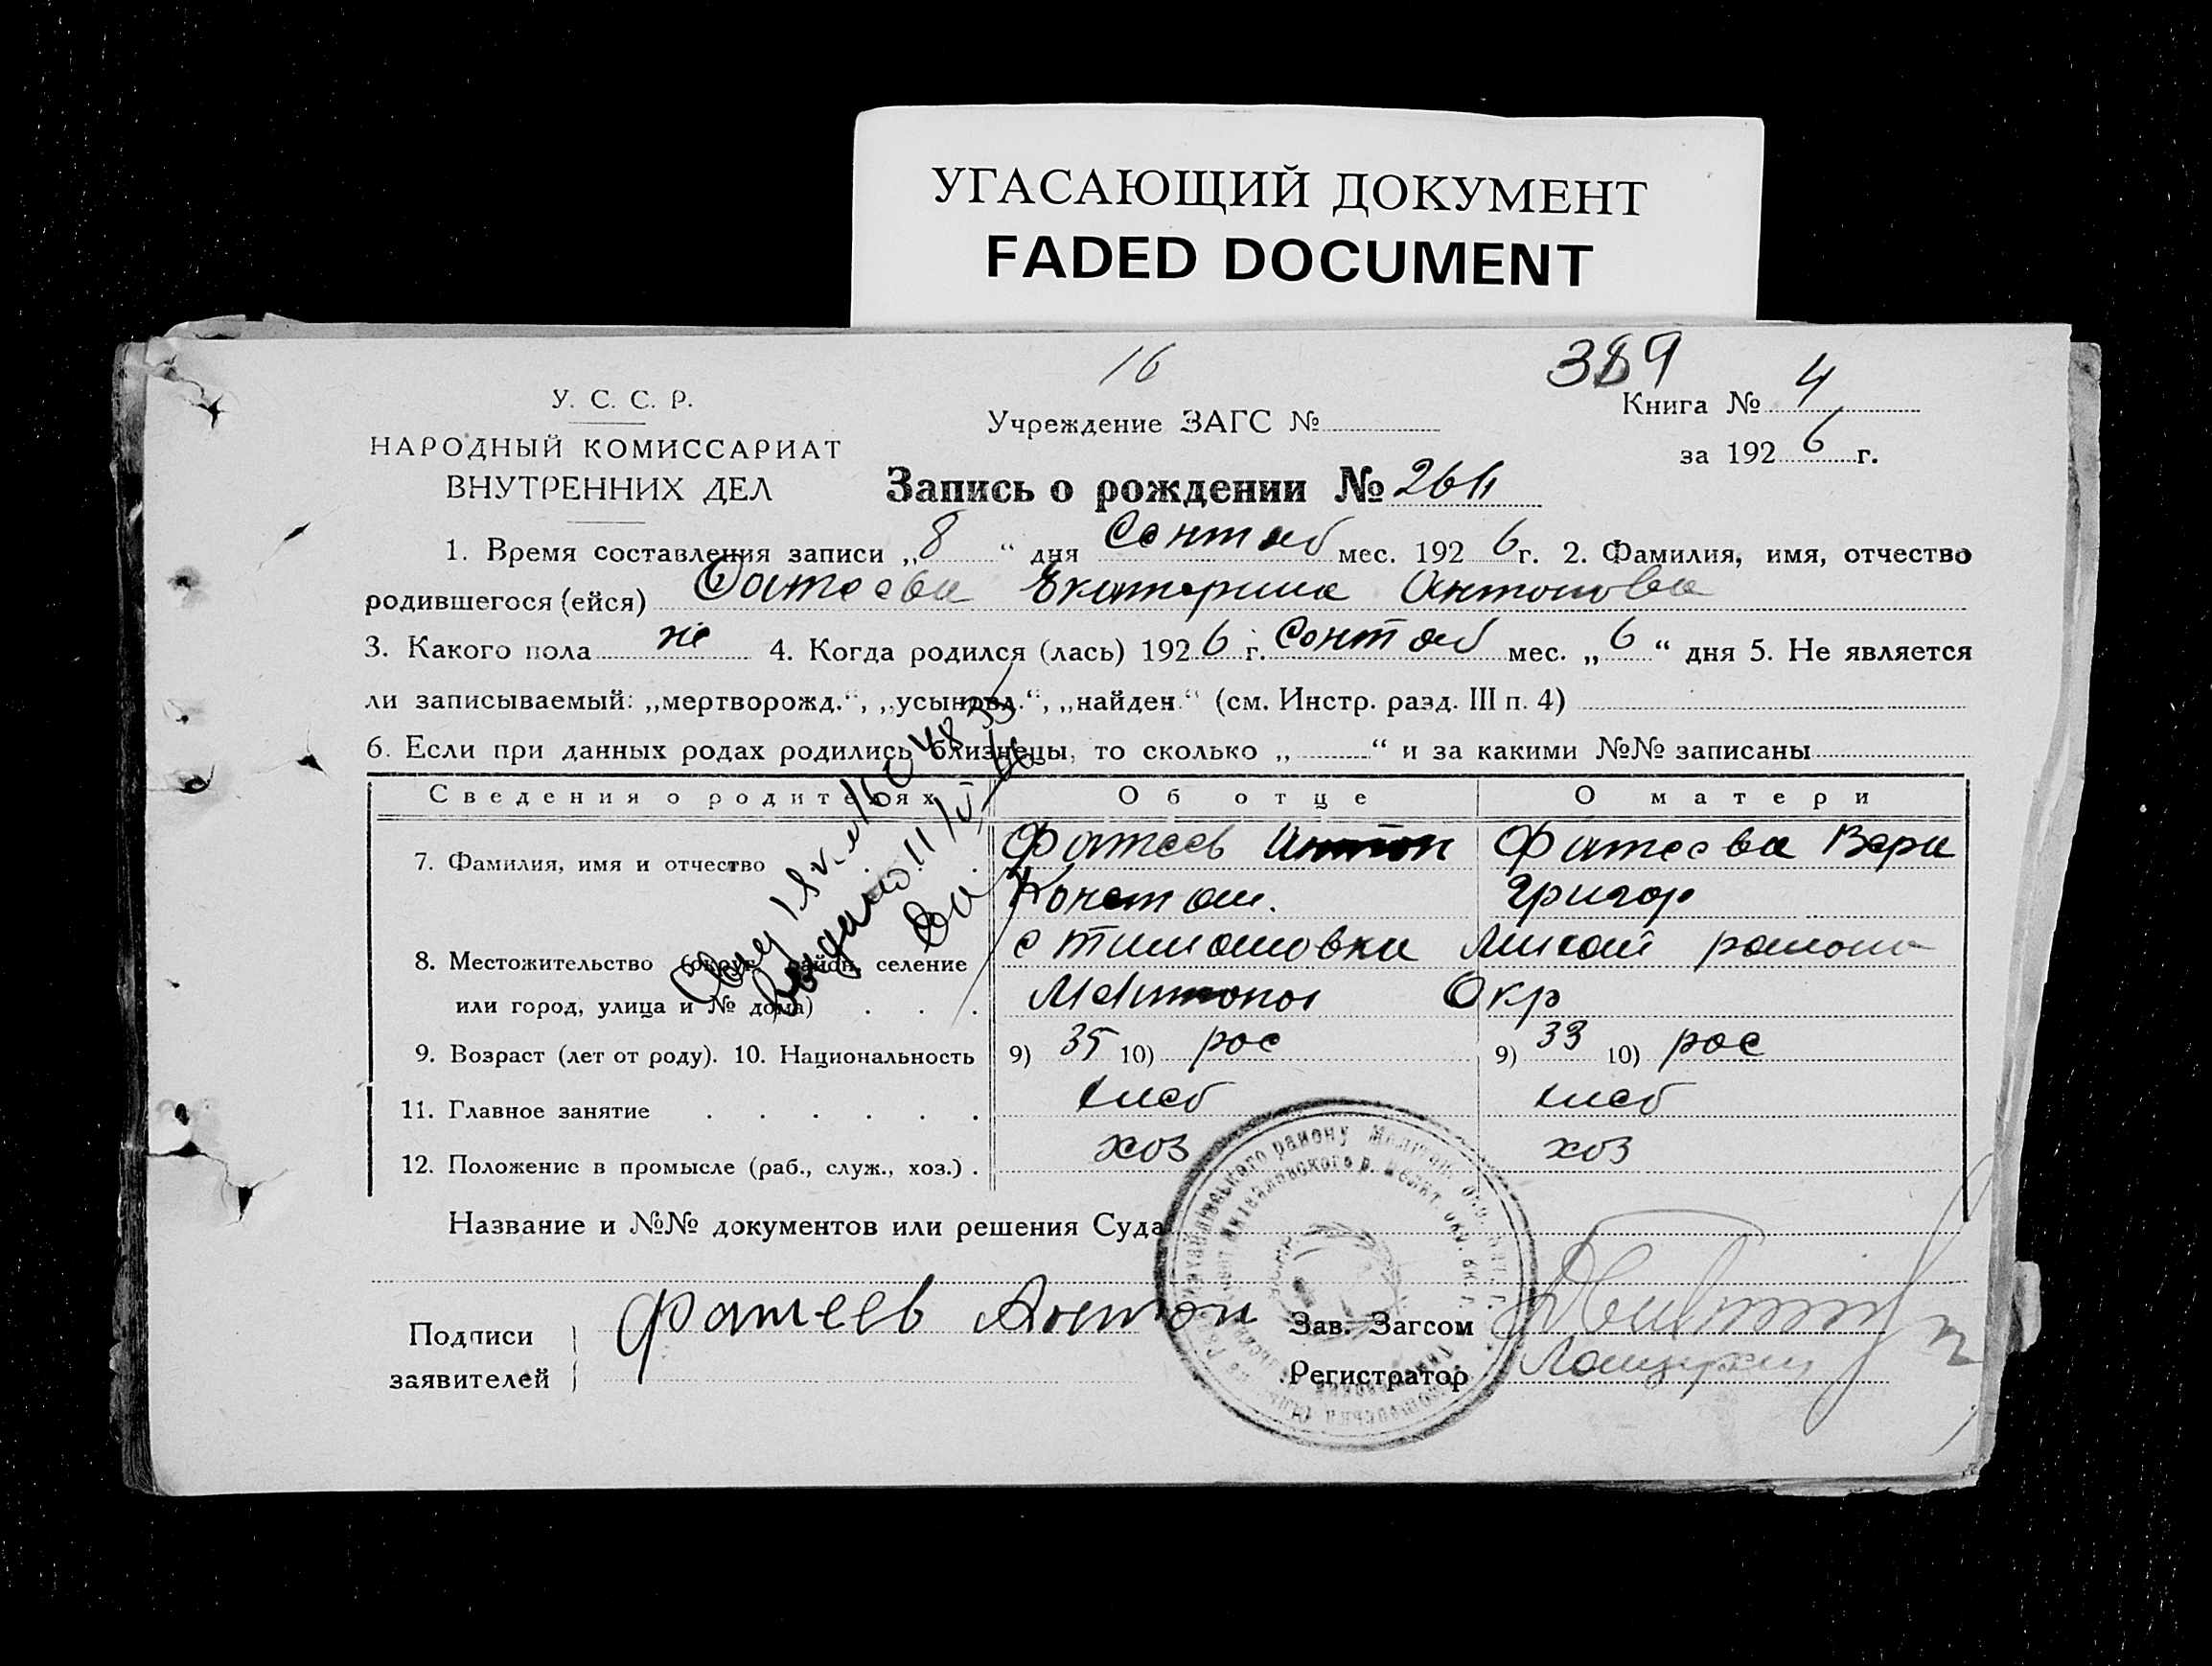 УГАСАЮЩИЙ ДОКУМЕНТ
FADED DOCUMENT
16
389
У. С. С. Р.
НАРОДНЫЙ КОМИССАРИАТ
ВНУТРЕННИХ ДЕЛ
Учреждение ЗАГС №
Книга № 4
за 1926 г.
Запись о рождении №
1. Время составления записи „8“ дня Сентяб мес. 1926 г. 2. Фамилия, имя, отчество
родившегося (ейся) Фатеева Екатерина Антоновна
3. Какого пола ж 4. Когда родился (лась) 1926 г. Сентяб мес. „6“ дня 5. Не является
ли записываемый: „мертворожд.“, „усыновл.“, „найден.“ (см. Инстр. разд. III п. 4)
6. Если при данных родах родились близнецы, то сколько „ “ и за какими №№ записаны
Сведения о родителях Об отце О матери
7. Фамилия, имя и отчество Фатеев Антон Фатеева Вера
Констан. Григор
8. Местожительство (округ, район, селение с Тимашовка Михай района
или город, улица и № дома) . . . Мелитопол Окр
9. Возраст (лет от роду). 10. Национальность 9) 35 10) рос 9) 33 10) рос
11. Главное занятие . . . . . . хлеб хлеб
12. Положение в промысле (раб., служ., хоз.) . хоз хоз
Название и №№ документов или решения Суда
Подписи
заявителей
Фатеев Антон
Зав. Загсом
Регистратор